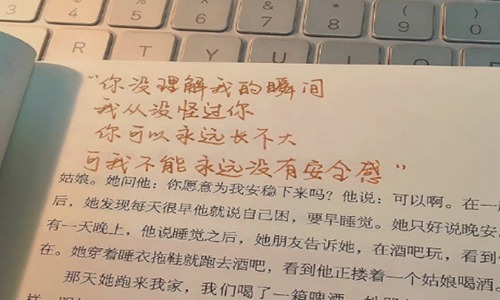 & 7
* 8
( 9
) 0
R T Y U I O P
“你没理解我的瞬间
我从没怪过你
你可以永远长不大
可我不能永远没有安全感”
姑娘。她问他:你愿意为我安稳下来吗?他说:可以啊。在一
后,她发现每天很早他就说自己困,要早睡觉。她只好说晚安。
有一天晚上,他说睡觉之后,她朋友告诉她,在酒吧玩,看到他
在。她穿着睡衣拖鞋就跑去酒吧,看到他正搂着一个姑娘喝酒
那天她跑来我家,我们喝了一箱啤酒